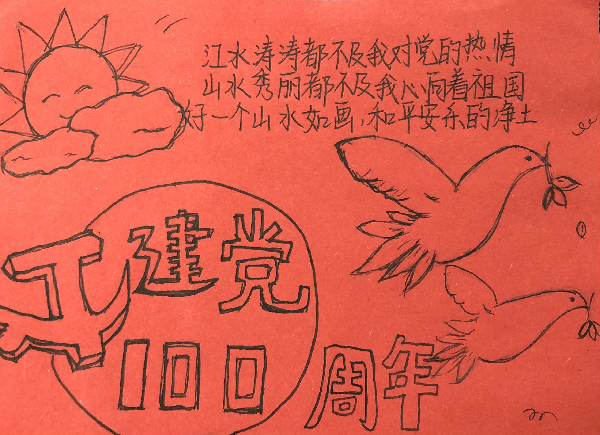 江水涛涛都不及我对党的热情
山水秀丽都不及我心向着祖国
好一个山水如画,和平安乐的净土
建党
100周年